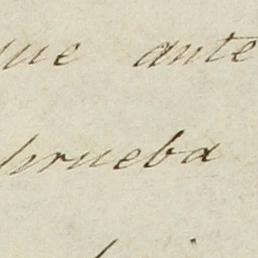 que ante
prueba